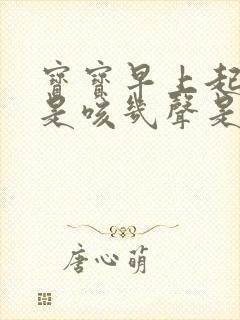 寶寶早上起
是咳幾聲是
唐心萌